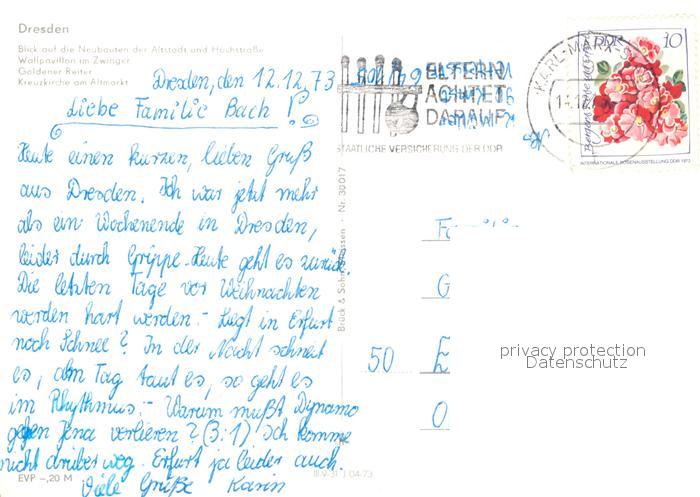 Dresden
Blick auf die Neubauten der Altstadt und Hochstraße
Wallpavillon im Zwinger
Goldener Reiter
Kreuzkirche am Altmarkt
Dresden, den 12.12.73
Liebe Familie Bach!
Heute einen kurzen, lieben Gruß
aus Dresden. Ich war jetzt mehr
als ein Wochenende in Dresden,
leider durch Grippe. Heute geht es zurück.
Die letzten Tage vor Weihnachten
werden hart werden. - Liegt in Erfurt
noch Schnee? In der Nacht schneit
es, am Tag taut es, so geht es
im Rhythmus. - Warum mußt Dynamo
gegen Jena verlieren? (3:1) Ich komme
nicht drüber weg. Erfurt ja leider auch.
Viele Grüße Karin
EVP -,20 M
III-9-31 J 04-73
Brück & Sohn Meissen · Nr. 30017
ELTERN
ACHTET
DARAUF
STAATLICHE VERSICHERUNG DER DDR
KARL-MARX-S
DDR 10
INTERNATIONALE ROSENAUSSTELLUNG DDR 1972
F
G
50 E
O
privacy protection
Datenschutz